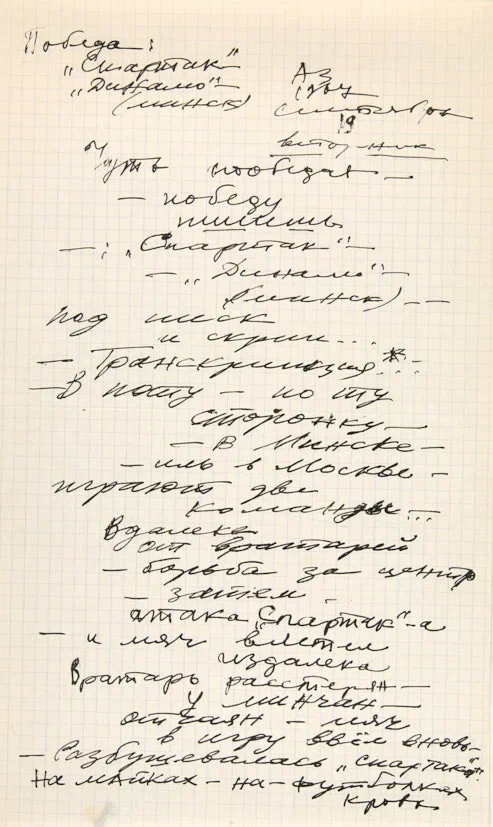 Победа:
„Спартак"
„Динамо"—
(минск)
Аз
сентября
19
вторник
Чуть победа —
— победу
пишешь
— : „Спартак"—
— „Динамо"—
(минск) — —
под писк
и скрип...
— Транскрипция*...
— В поту — по ту
сторонку —
— В Минске —
— иль в Москве —
играют две
команды...
Вдалеке
от вратарей
— борьба за центр
— затем
атака „Спартак"-а
— и мяч влетел
издалека
Вратарь растерян —
у минчан —
отчаян — мяч
в игру ввёл вновь —
— Разбушевалась „Спартак"
на майках — на футболках
кровь